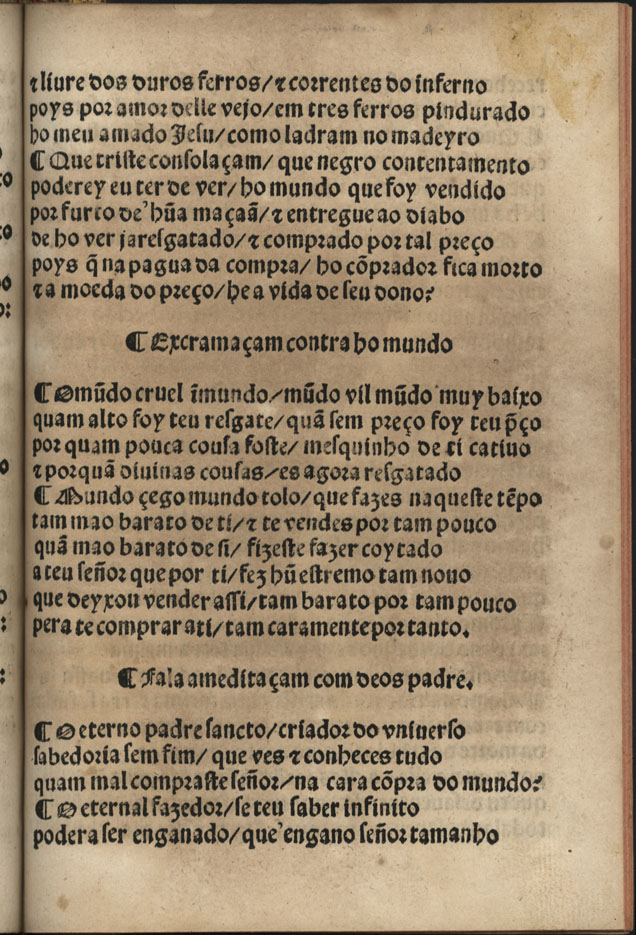 ⁊ liure dos duros ferros/⁊ correntes do inferno
poys por amor delle vejo/em tres ferros pindurado
ho meu amado Jesu/como ladram no madeyro
¶ Que triste consolaçam/ que negro contentamento
poderey eu ter de ver/ho mundo que foy vendido
por furto de hũa maçaã/⁊ entregue ao diabo
de ho ver ja resgatado/⁊ comprado por tal preço
poys q̃ na pagua da compra/ ho cõprador fica morto
⁊ a moeda do preço/he a vida de seu dono?
¶ Excramaçam contra ho mundo
¶ O mũdo cruel ĩmundo/mũdo vil mũdo muy baixo
quam alto foy teu resgate/quã sem preço foy teu p̃ço
por quam pouca cousa foste/ mesquinho de ti catiuo
⁊ por quã diuinas cousas/es agora resgatado
¶ Mundo çego mundo tolo/que fazes naqueste tẽpo
tam mao barato de ti/⁊ te vendes por tam pouco
quã mao barato de si/ fizeste fazer coytado
a teu señor que por ti/fez hũ estremo tam nouo
que deyxou vender assi/tam barato por tam pouco
pera te comprar a ti/tam caramente por tanto.
¶ Fala a meditaçam com deos padre.
¶ O eterno padre sancto/criador do vniuerso
sabedoria sem fim/ que ves ⁊ conheces tudo
quam mal compraste señor/na cara cõpra do mundo?
¶ O eternal fazedor/se teu saber infinito
podera ser enganado/que engano señor tamanho